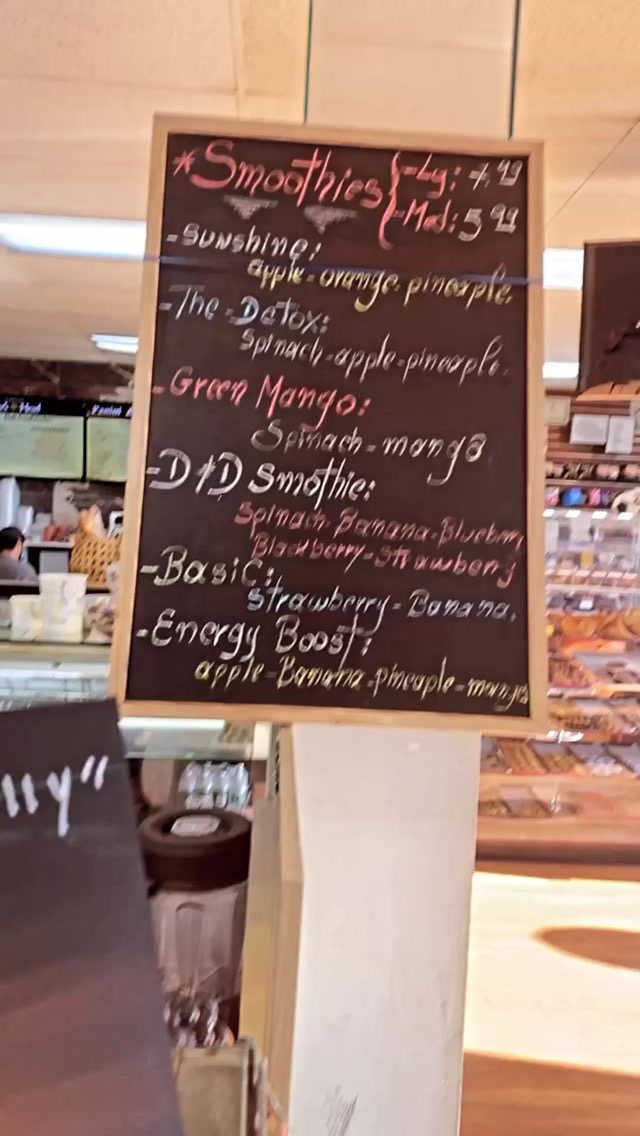 *Smoothies { -Lg: 7.99
-Med: 5 99
-Sunshine:
apple-orange-pineaple.
-The-Detox:
Spinach-apple-pineaple.
-Green Mango:
Spinach-mango
-D&D Smothie:
Spinach-Banana-Blueberry
Blackberry-Strawberry
-Basic:
Strawberry-Banana.
-Energy Boost:
apple-Banana-pineaple-mango